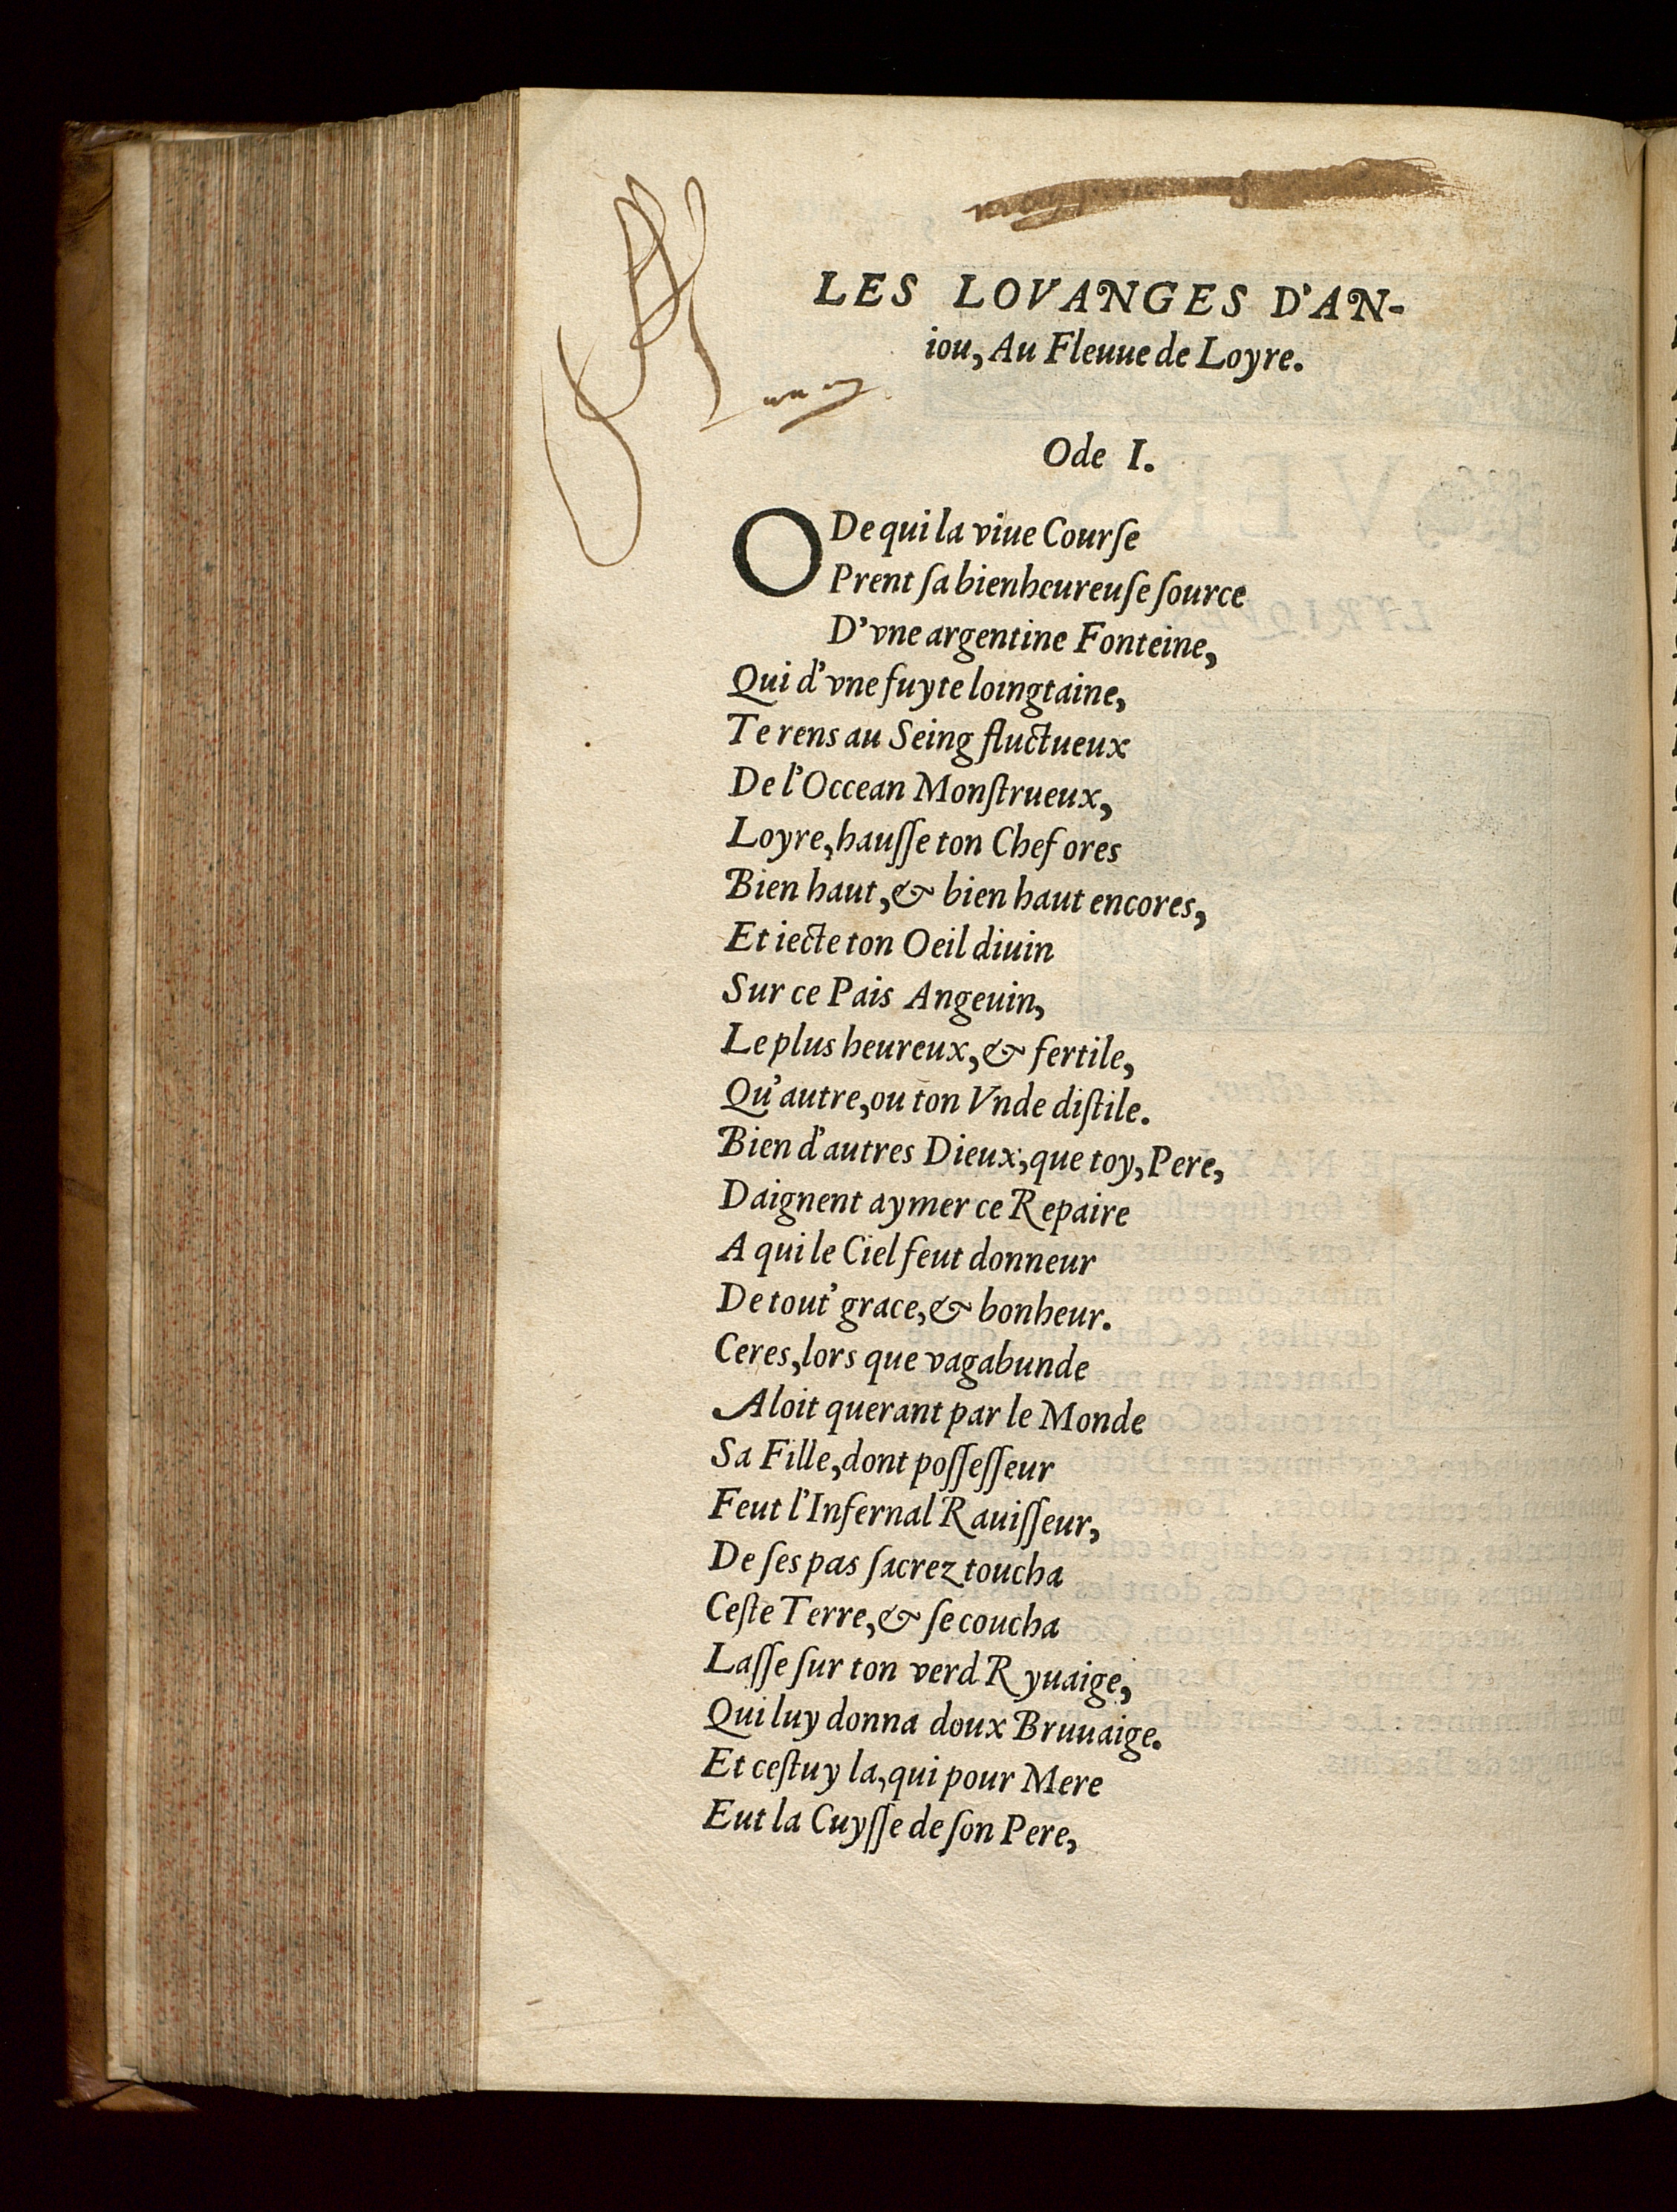 LES LOVANGES D'AN-
iou, Au Fleuue de Loyre.
Ode I.
O De qui la viue Courſe
Prent ſa bienheureuſe ſource
D'vne argentine Fonteine,
Qui d'vne fuyte loingtaine,
Te rens au Seing fluctueux
De l'Occean Monſtrueux,
Loyre, hauſſe ton Chef ores
Bien haut, & bien haut encores,
Et iecte ton Oeil diuin
Sur ce Pais Angeuin,
Le plus heureux, & fertile,
Qu'autre, ou ton Vnde diſtile.
Bien d'autres Dieux, que toy, Pere,
Daignent aymer ce Repaire
A qui le Ciel feut donneur
De tout' grace, & bonheur.
Ceres, lors que vagabunde
Aloit querant par le Monde
Sa Fille, dont poſſeſſeur
Feut l'Infernal Rauiſſeur,
De ſes pas ſacrez toucha
Ceſte Terre, & ſe coucha
Laſſe ſur ton verd Ryuaige,
Qui luy donna doux Bruuaige.
Et ceſtuy la, qui pour Mere
Eut la Cuyſſe de ſon Pere,